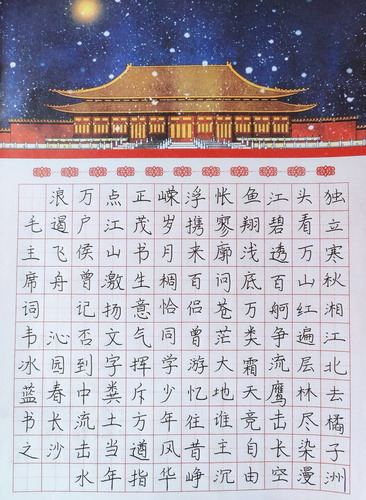 独立寒秋湘江北去橘子洲
头看万山红遍层林尽染漫
江碧透百舸争流鹰击长空
鱼翔浅底万类霜天竞自由
怅寥廓问苍茫大地谁主沉
浮携来百侣曾游忆往昔峥
嵘岁月稠恰同学少年风华
正茂书生意气挥斥方遒指
点江山激扬文字粪土当年
万户侯曾记否到中流击水
浪遏飞舟 沁园春长沙
毛主席词韦冰蓝书之